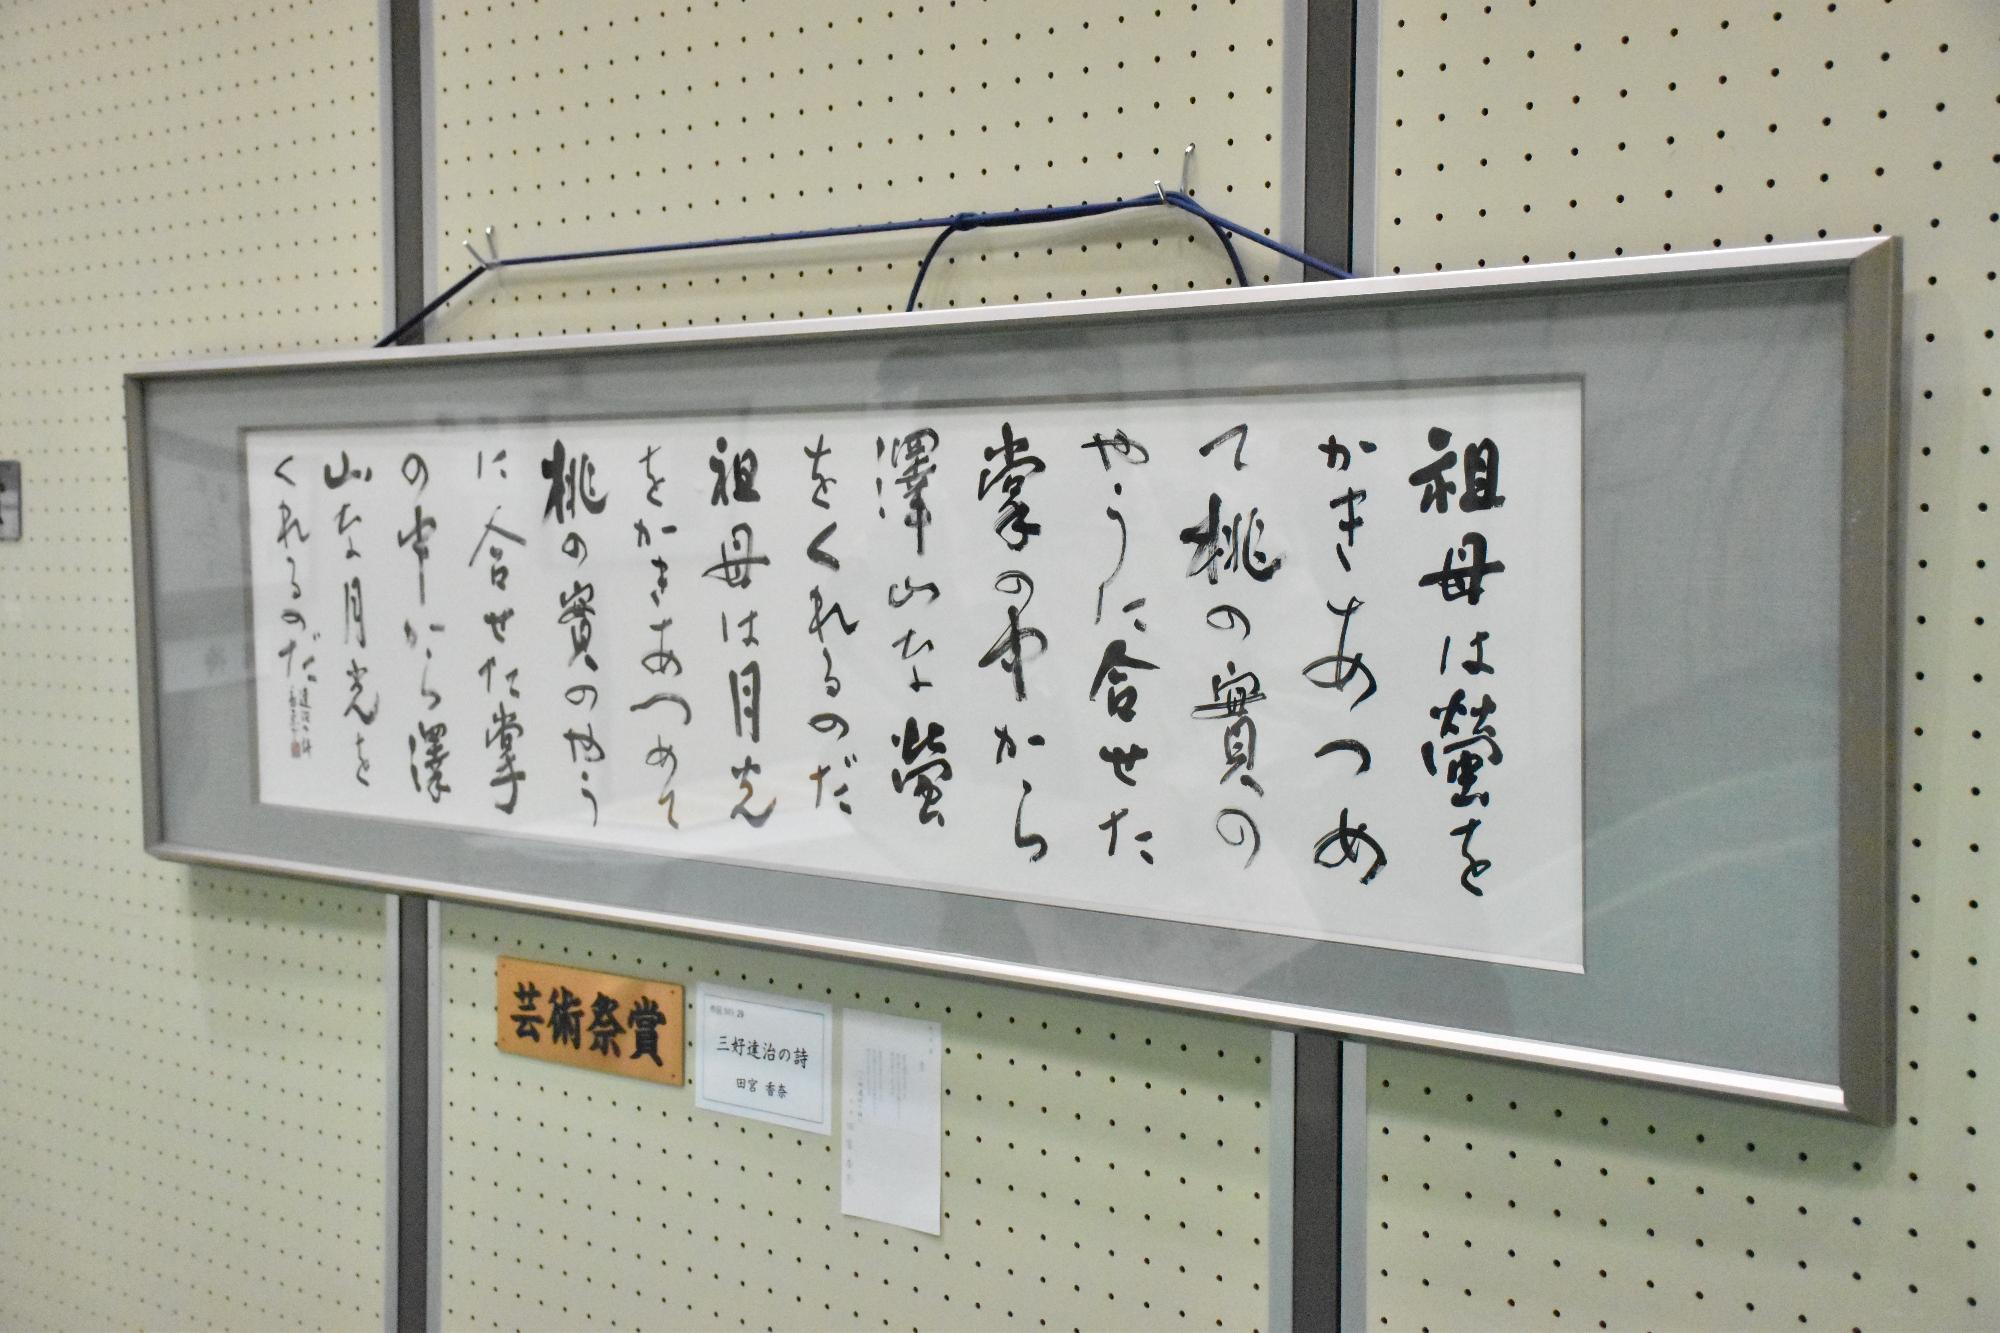 祖母は螢を
かきあつめ
て桃の實の
やうに合せた
掌の中から
澤山な螢
をくれるのだ
祖母は月光
をかきあつめて
桃の實のやう
に合せた掌
の中から澤
山な月光を
くれるのだ
達治の詩
芸術祭賞
三好達治の詩
田宮 香奈